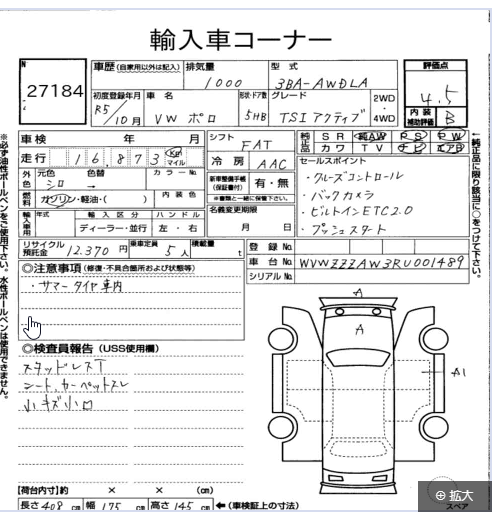 輸入車コーナー
No 27184
車歴 (自家用以外は記入) 排気量 型式 評価点
1000 3BA-AWDLA 4.5
初度登録年月 車名 形状・ドア数 グレード 2WD・4WD
R5/10月 VW ポロ 5HB TSI アクティブ
内装補助評価 B
車検 年 月
シフト FAT
純正品 SR 純AW PS PW
カワ TV ナビ エアB
走行 16,873 Km マイル
冷房 AAC
セールスポイント
・クルーズコントロール
・バックカメラ
・ビルトインETC2.0
・プッシュスタート
外色 元色 色替 カラーNo.
シロ →
燃料 ガソリン・軽油・( ) 内装色
新車整備手帳(保証書付) 有・無
※書類と一緒に保管して下さい。
輸入車用 年式 輸入区分 ハンドル
ディーラー・並行 左・右
名義変更期限
月 日
リサイクル預託金 12,370円 乗車定員 5人 積載量 t
登録No.
車台No. WVWZZZAW3RU001489
シリアルNo.
◎注意事項 (修復・不具合箇所および状態等)
・サマータイヤ車内
◎検査員報告 (USS使用欄)
スタッドレスT
シート、カーペットスレ
小キズ小凹
A
A
A1
【荷台内寸】約 × × (cm)
長さ 408 cm 幅 175 cm 高さ 145 cm ←(車検証上の寸法)
スペア
※必ず油性ボールペンをご使用下さい。水性ボールペンは使用できません。
←純正品に限り該当に○をつけて下さい。
拡大